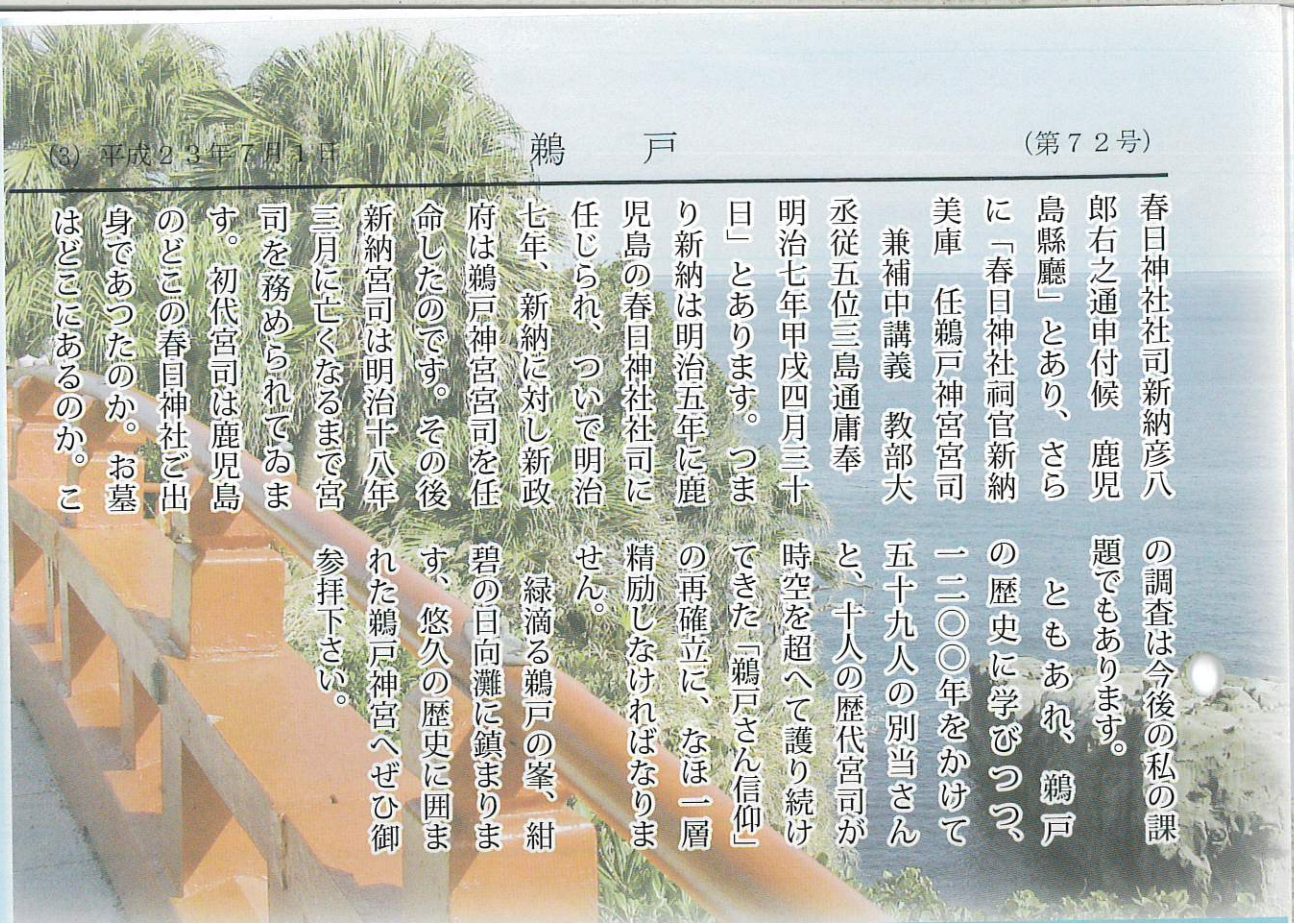 (第72号)
鵜戸
(3) 平成23年7月1日
春日神社社司新納彦八
郎右之通申付候　鹿児
島縣廳」とあり、さら
に「春日神社祠官新納
美庫　任鵜戸神宮宮司
　兼補中講義　教部大
丞従五位三島通庸奉
明治七年甲戌四月三十
日」とあります。つま
り新納は明治五年に鹿
児島の春日神社社司に
任じられ、ついで明治
七年、新納に対し新政
府は鵜戸神宮宮司を任
命したのです。その後
新納宮司は明治十八年
三月に亡くなるまで宮
司を務められてゐま
す。初代宮司は鹿児島
のどこの春日神社ご出
身であつたのか。お墓
はどこにあるのか。こ
の調査は今後の私の課
題でもあります。
　ともあれ、鵜戸
の歴史に学びつつ、
一二〇〇年をかけて
五十九人の別当さん
と、十人の歴代宮司が
時空を超へて護り続け
てきた「鵜戸さん信仰」
の再確立に、なほ一層
精励しなければなりま
せん。
　緑滴る鵜戸の峯、紺
碧の日向灘に鎮まりま
す、悠久の歴史に囲ま
れた鵜戸神宮へぜひ御
参拝下さい。